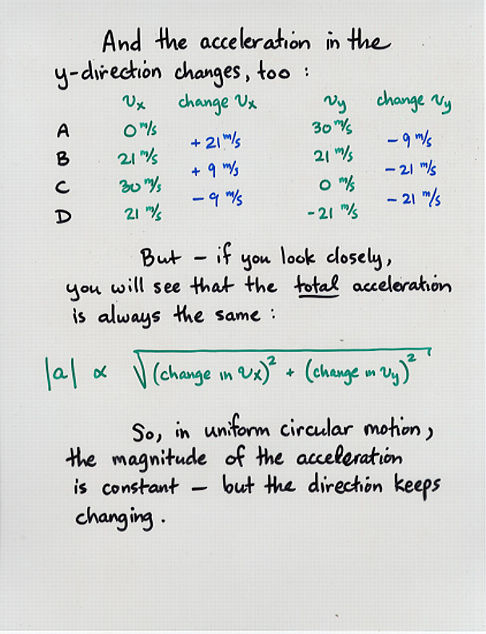 And the acceleration in the
y-direction changes, too :
vx change vx vy change vy
A 0 m/s 30 m/s
+ 21 m/s - 9 m/s
B 21 m/s 21 m/s
+ 9 m/s - 21 m/s
C 30 m/s 0 m/s
- 9 m/s - 21 m/s
D 21 m/s - 21 m/s
But - if you look closely,
you will see that the total acceleration
is always the same :
|a| ∝ √(change in vx)² + (change in vy)²
So, in uniform circular motion,
the magnitude of the acceleration
is constant - but the direction keeps
changing.